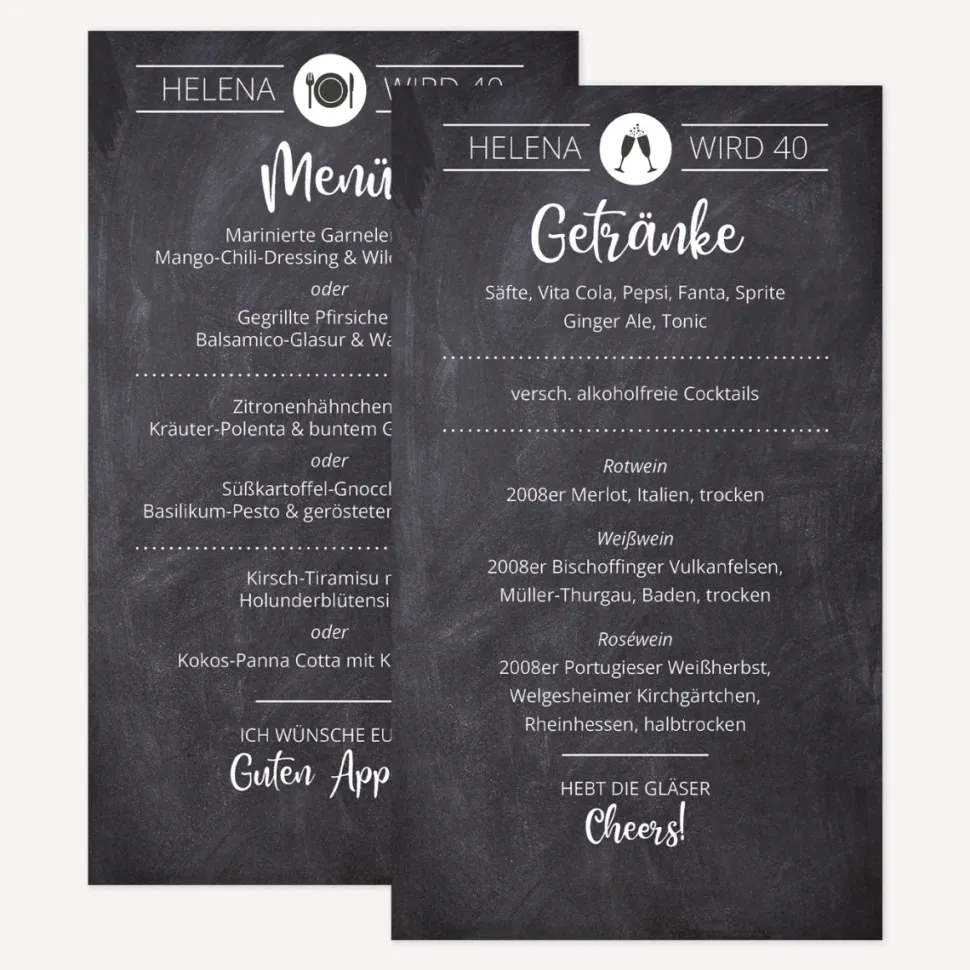 HELENA WIRD 40
Menü
Marinierte
Mango-Chili-Dressing &
oder
Gegrillte Pfirsiche
Balsamico-Glasur &
Zitronenhähnchen
Kräuter-Polenta & buntem
oder
Basilikum-Pesto &
Kirsch-Tiramisu
oder
Kokos-Panna Cotta mit
ICH WÜNSCHE
Guten
HELENA WIRD 40
Getränke
Säfte, Vita Cola, Pepsi, Fanta, Sprite
Ginger Ale, Tonic
versch. alkoholfreie Cocktails
Rotwein
2008er Merlot, Italien, trocken
Weißwein
2008er Bischoffinger Vulkanfelsen,
Müller-Thurgau, Baden, trocken
Roséwein
2008er Portugieser Weißherbst,
Welgesheimer Kirchgärtchen,
Rheinhessen, halbtrocken
HEBT DIE GLÄSER
Cheers!